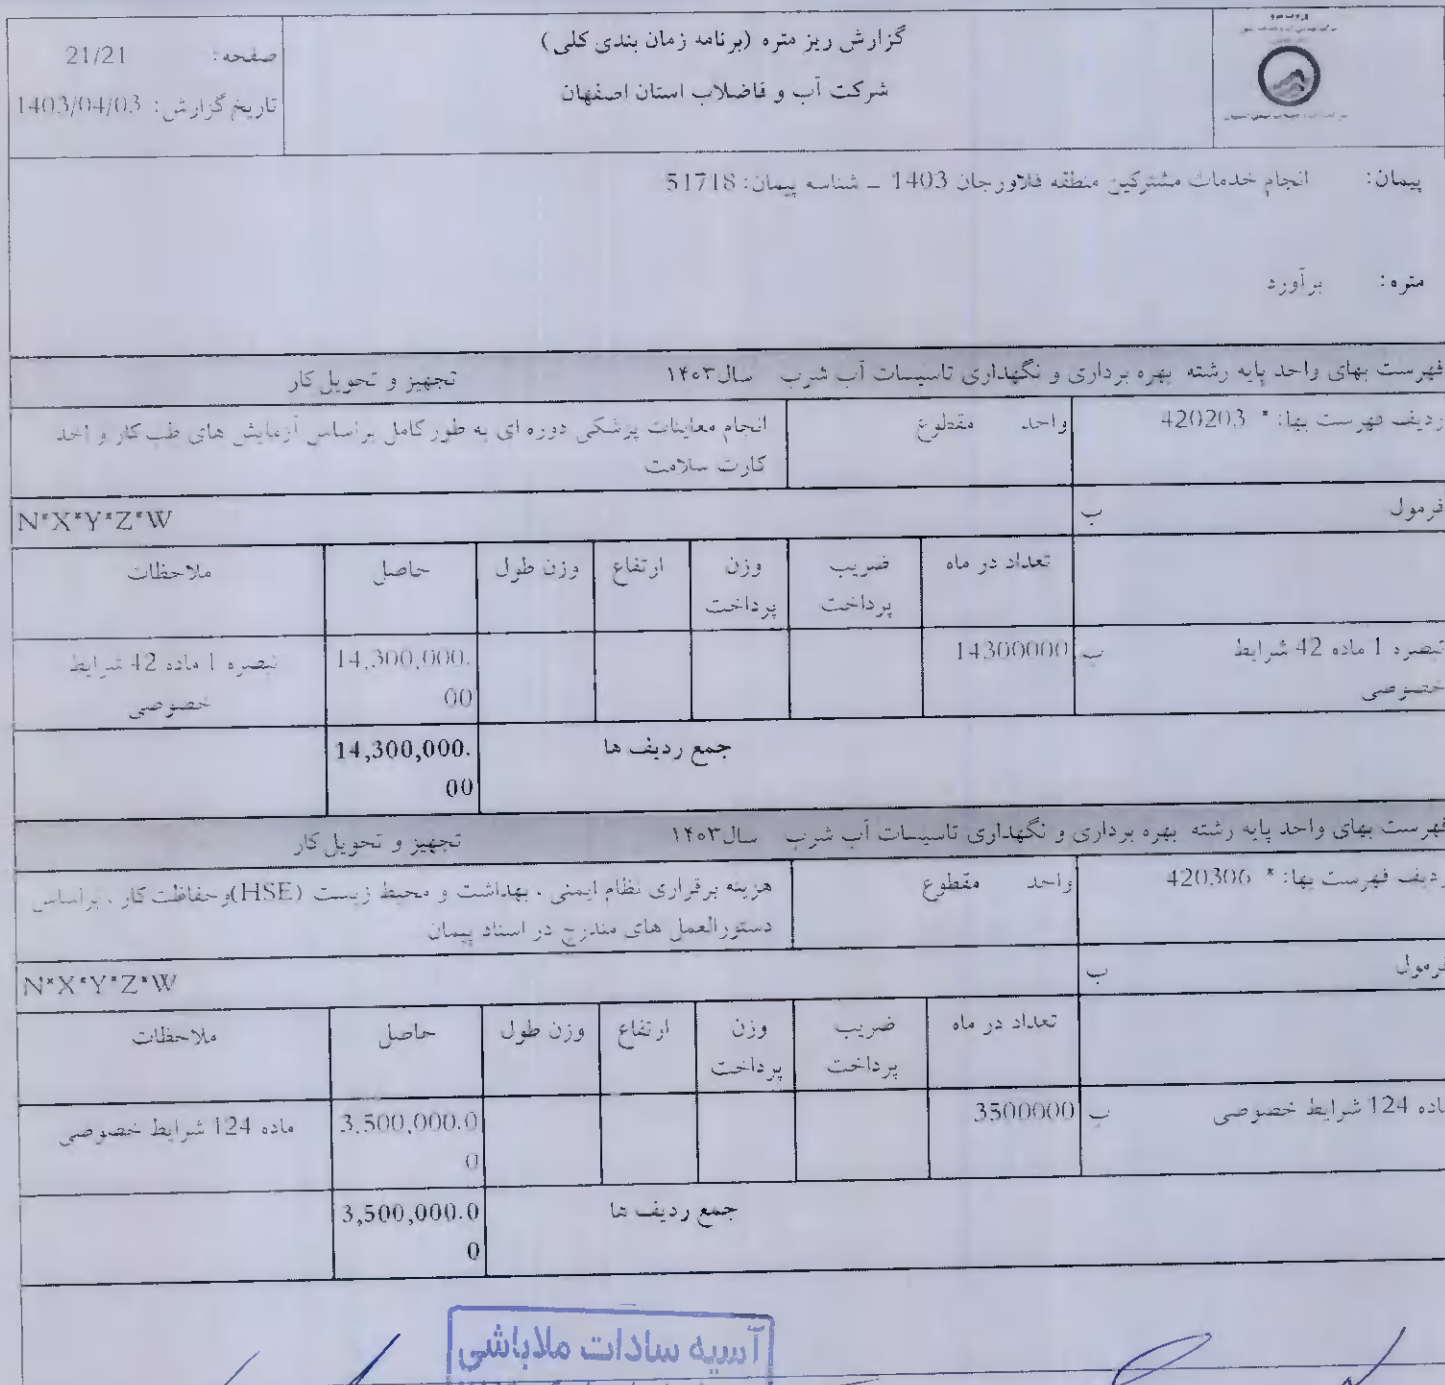 گزارش ریز متره (برنامه زمان بندی کلی)
شرکت آب و فاضلاب استان اصفهان
صفحه: 21/21
تاریخ گزارش: 1403/04/03
پیمان: انجام خدمات مشترکین منطقه فلاورجان 1403 - شناسه پیمان: 51718
متره: برآورد
فهرست بهای واحد پایه رشته بهره برداری و نگهداری تاسیسات آب شرب سال ۱۴۰۳ تجهیز و تحویل کار
ردیف فهرست بها: * 420203 واحد مقطوع انجام معاینات پزشکی دوره ای به طور کامل براساس آزمایش های طب کار و اخذ
کارت سلامت
فرمول ب N*X*Y*Z*W
تعداد در ماه ضریب وزن ارتفاع وزن طول حاصل ملاحظات
پرداخت پرداخت
تبصره 1 ماده 42 شرایط ب 14300000 14,300,000. تبصره 1 ماده 42 شرایط
خصوصی 00 خصوصی
جمع ردیف ها 14,300,000.
00
فهرست بهای واحد پایه رشته بهره برداری و نگهداری تاسیسات آب شرب سال ۱۴۰۳ تجهیز و تحویل کار
ردیف فهرست بها: * 420306 واحد مقطوع هزینه برقراری نظام ایمنی ، بهداشت و محیط زیست (HSE)وحفاظت کار ، براساس
دستورالعمل های مندرج در اسناد پیمان
فرمول ب N*X*Y*Z*W
تعداد در ماه ضریب وزن ارتفاع وزن طول حاصل ملاحظات
پرداخت پرداخت
ماده 124 شرایط خصوصی ب 3500000 3,500,000.0 ماده 124 شرایط خصوصی
0
جمع ردیف ها 3,500,000.0
0
آسیه سادات ملاباشی